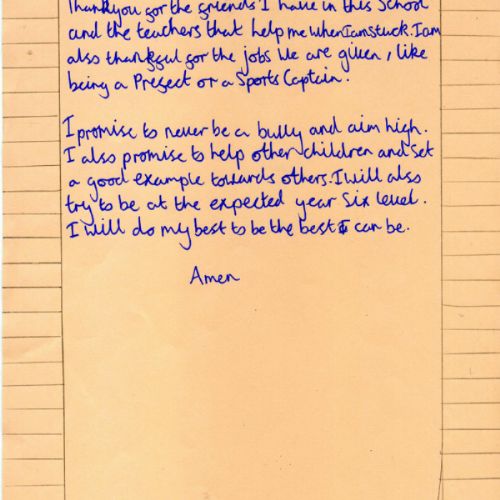 Thankyou for the friends I have in this School
and the teachers that help me when I am stuck. I am
also thankful for the jobs we are given, like
being a Prefect or a Sports Captain.
I promise to never be a bully and aim high.
I also promise to help other children and set
a good example towards others. I will also
try to be at the expected year Six level.
I will do my best to be the best I can be.
Amen